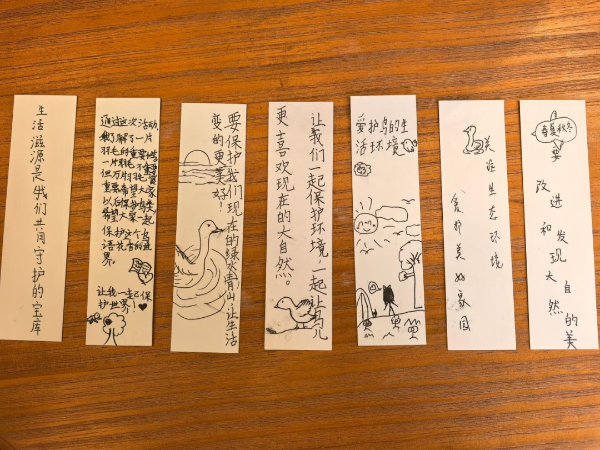 生活滋源是我们共同守护的宝库
通过这次活动,
我了解了一片
羽毛的重要性
一片羽毛不重
但一万片羽毛
以后希望大家
希望大家一起
保护这个鸟
语花香的世
界。
让我一起保
护世界!
要保护我们现在的绿水青山让生活
变的更美好!
让我们一起保护环境,一起让鸟儿
更喜欢现在的大自然。
爱护鸟的生
活环境
关注生态环境
爱护美好家园
春夏秋冬
要
改进和发现大自然的美